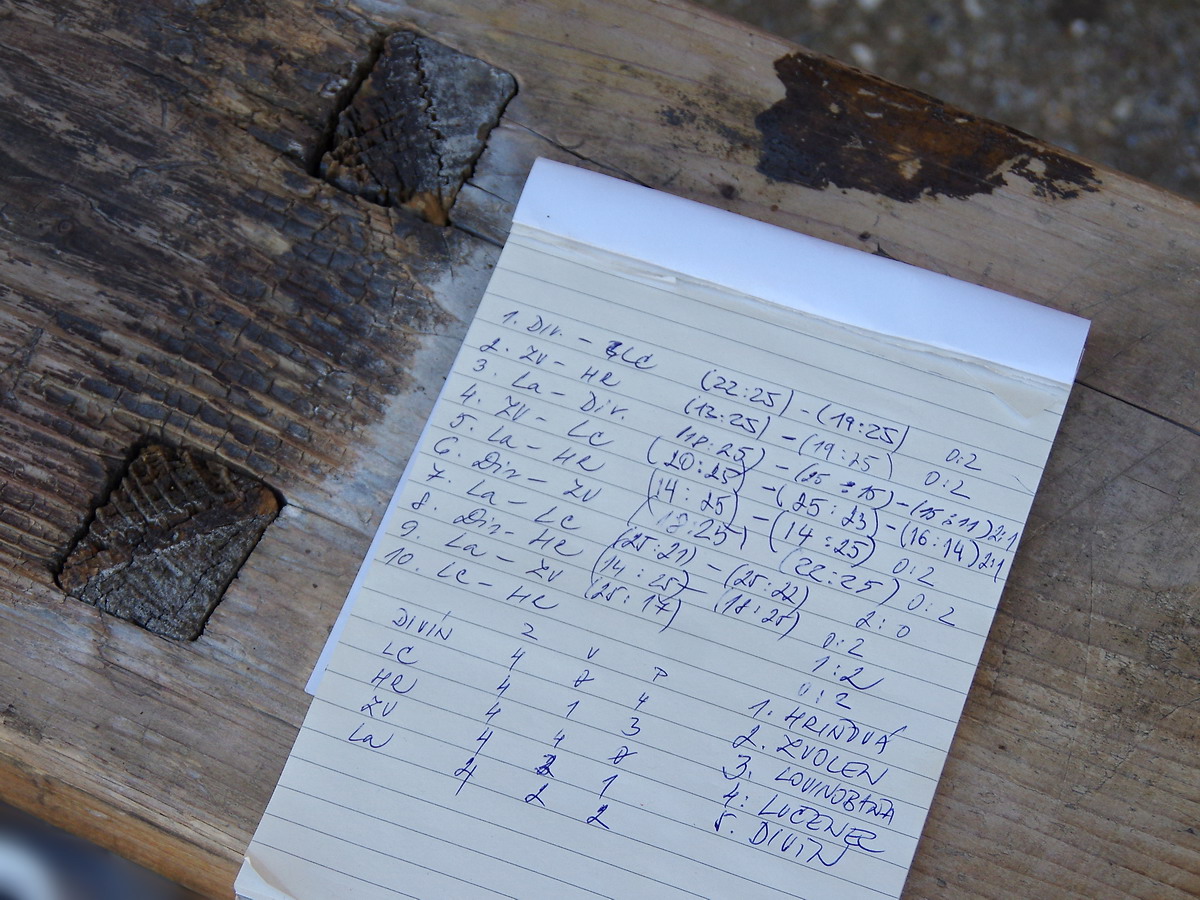 1. Div. - LC (22:25) - (19:25) 0:2
2. ZV - HR (13:25) - (19:25) 0:2
3. La - Div. (18:25) - (25:15) - (15:11) 2:1
4. ZV - LC (20:25) - (25:23) - (16:14) 2:1
5. La - HR (14:25) - (14:25) 0:2
6. Div - ZV (18:25) (22:25) 0:2
7. La - LC (25:21) - (25:22) 2:0
8. Div - HR (14:25) - (18:25) 0:2
9. La - ZV (25:17) 1:2
10. LC - HR 0:2
Z V P
DIVÍN 4 0 4
LC 4 1 3
HR 4 4 0
ZV 4 3 1
La 4 2 2
1. HRIŇOVÁ
2. ZVOLEN
3. LOVINOBAŇA
4. LUČENEC
5. DIVÍN